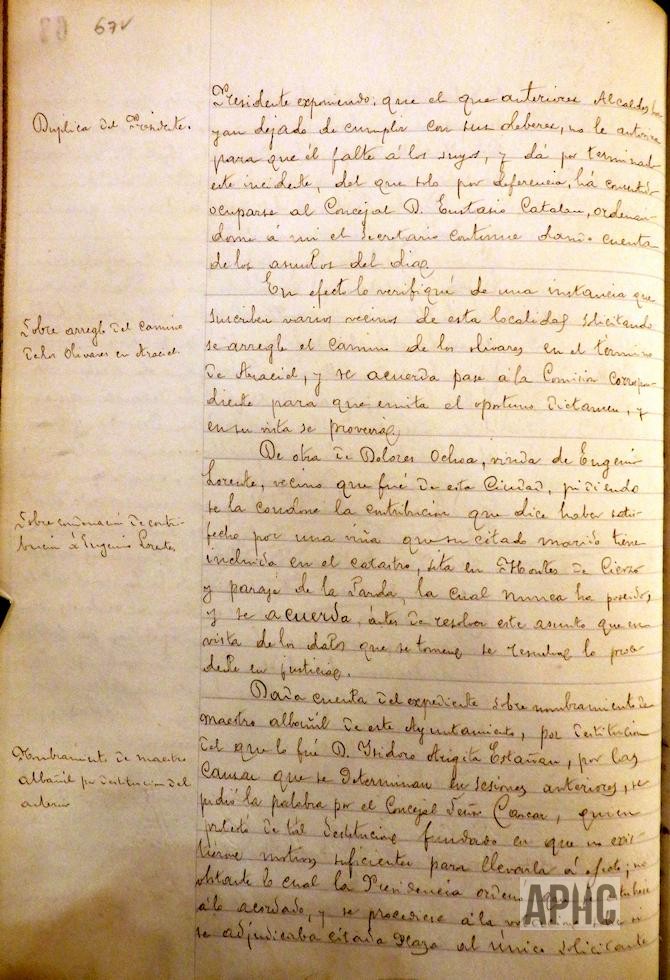 67v
Presidente exponiendo: que el que anteriores Alcaldes ha
Duplica del Presidente.
yan dejado de cumplir con sus deberes, no le autoriza
para que él falte á los suyos, y dá por terminado
este incidente, del que solo por deferencia, há consentido
ocuparse al Concejal D. Eustasio Catalan, ordenan-
dome á mi el Secretario continue dando cuenta
de los asuntos del dia
En efecto lo verifiqué de una instancia que
suscriben varios vecinos de esta localidad solicitando
Sobre arreglo del camino
de los Olivares en Araciel.
se arregle el camino de los olivares en el término
de Araciel, y se acuerda pase á la Comision correspon-
diente para que emita el oportuno dictamen, y
en su vista se proveerá
De otra de Dolores Ochoa, viuda de Eugenio
Lorente, vecino que fué de esta Ciudad, pidiendo
Sobre condonación de contri-
bucion á Eugenio Lorente
se la condone la contribucion que dice haber satis-
fecho por una viña que su citado marido tiene
incluida en el catastro, sita en Montes de Cierzo
y paraje de la Parda, la cual nunca ha poseido,
y se acuerda, antes de resolver este asunto que en
vista de los datos que se tomen se resuelva lo proce-
dente en justicia.
Dada cuenta del expediente sobre nombramiento de
maestro albañil de este Ayuntamiento, por destitucion
Nombramiento de maestro
albañil por destitucion del
anterior
del que lo fué D. Isidoro Arigita Estañan, por las
causas que se determinan en sesiones anteriores, se
pidió la palabra por el Concejal Señor Cascar, quien
protestó de tál destitucion fundado en que no exis-
tieron motivos suficientes para llevarla á efecto; no
obstante lo cual la Presidencia ordenó
á lo acordado, y se procediese á la
se adjudicaba citada Plaza al único solicitante
APHC